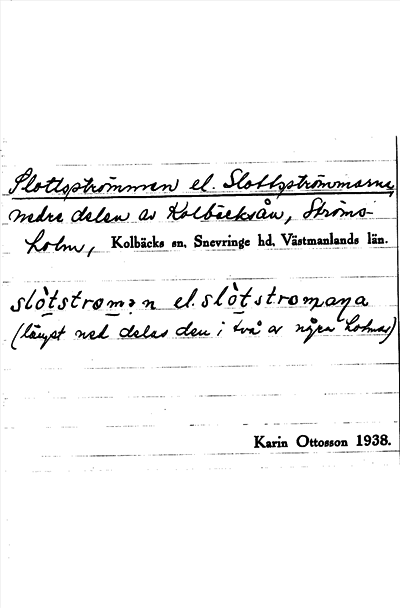 Slottsströmmen el. Slottsströmmarna,
nedre delen av Kolbäcksån, Ströms-
holm, Kolbäcks sn, Snevringe hd, Västmanlands län.
slòtstrømən el. slòtstrømaɳa
(längst ned delas den i två av några holmar)
Karin Ottosson 1938.